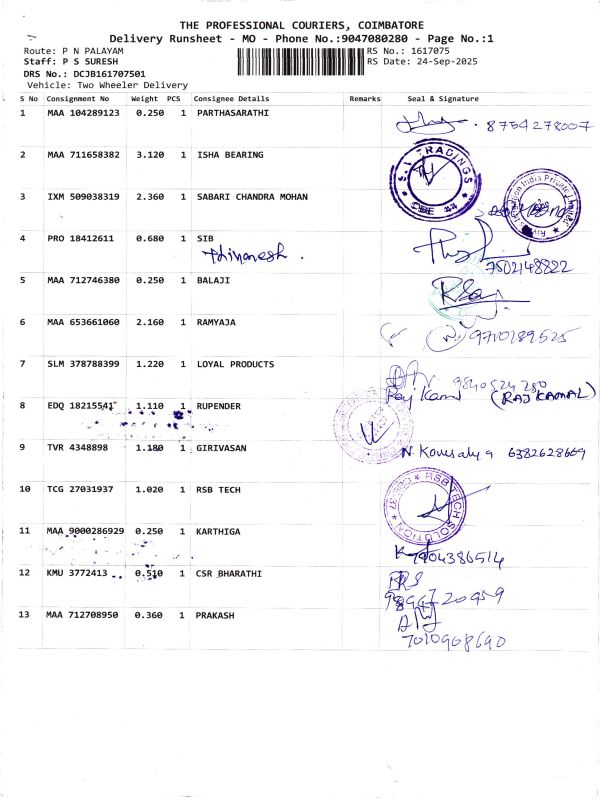 THE PROFESSIONAL COURIERS, COIMBATORE
Delivery Runsheet - MO - Phone No.:9047080280 - Page No.:1
Route: P N PALAYAM
RS No.: 1617075
Staff: P S SURESH
RS Date: 24-Sep-2025
DRS No.: DCJB161707501
Vehicle: Two Wheeler Delivery
S No Consignment No Weight PCS Consignee Details Remarks Seal & Signature
1 MAA 104289123 0.250 1 PARTHASARATHI
8754278007
2 MAA 711658382 3.120 1 ISHA BEARING
TRADINGS
CBE
3 IXM 509038319 2.360 1 SABARI CHANDRA MOHAN
India Private
4 PRO 18412611 0.680 1 SIB
7502148822
5 MAA 712746380 0.250 1 BALAJI
6 MAA 653661060 2.160 1 RAMYAJA
9710289525
7 SLM 378788399 1.220 1 LOYAL PRODUCTS
9840524280
8 EDQ 18215541 1.110 1 RUPENDER
Raj Kamal (RAJ KAMAL)
9 TVR 4348898 1.180 1 GIRIVASAN
N. Kousalya 6382628669
10 TCG 27031937 1.020 1 RSB TECH
RSB TECH SOLUTION
11 MAA 9000286929 0.250 1 KARTHIGA
7904386514
12 KMU 3772413 0.510 1 CSR BHARATHI
13 MAA 712708950 0.360 1 PRAKASH
7010908690